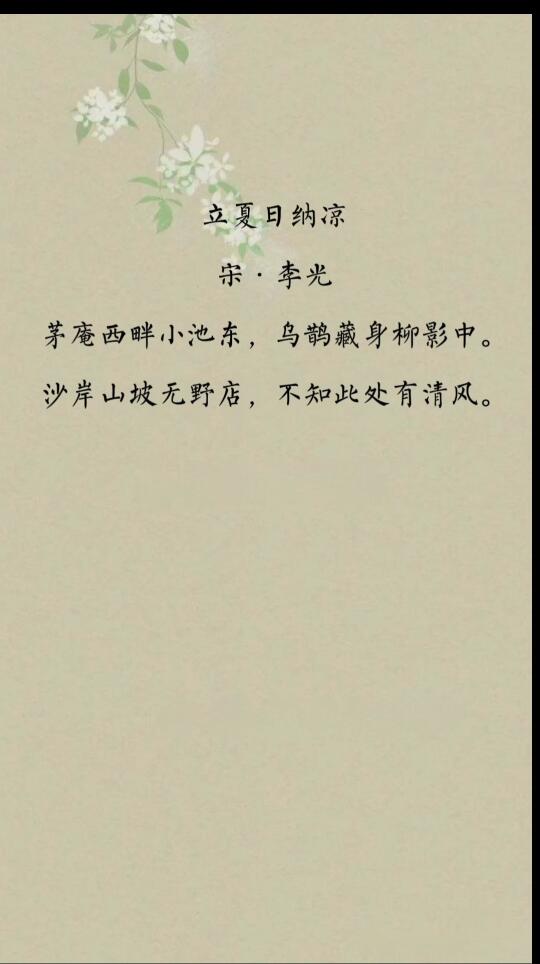 立夏日纳凉
宋·李光
茅庵西畔小池东，乌鹊藏身柳影中。
沙岸山坡无野店，不知此处有清风。